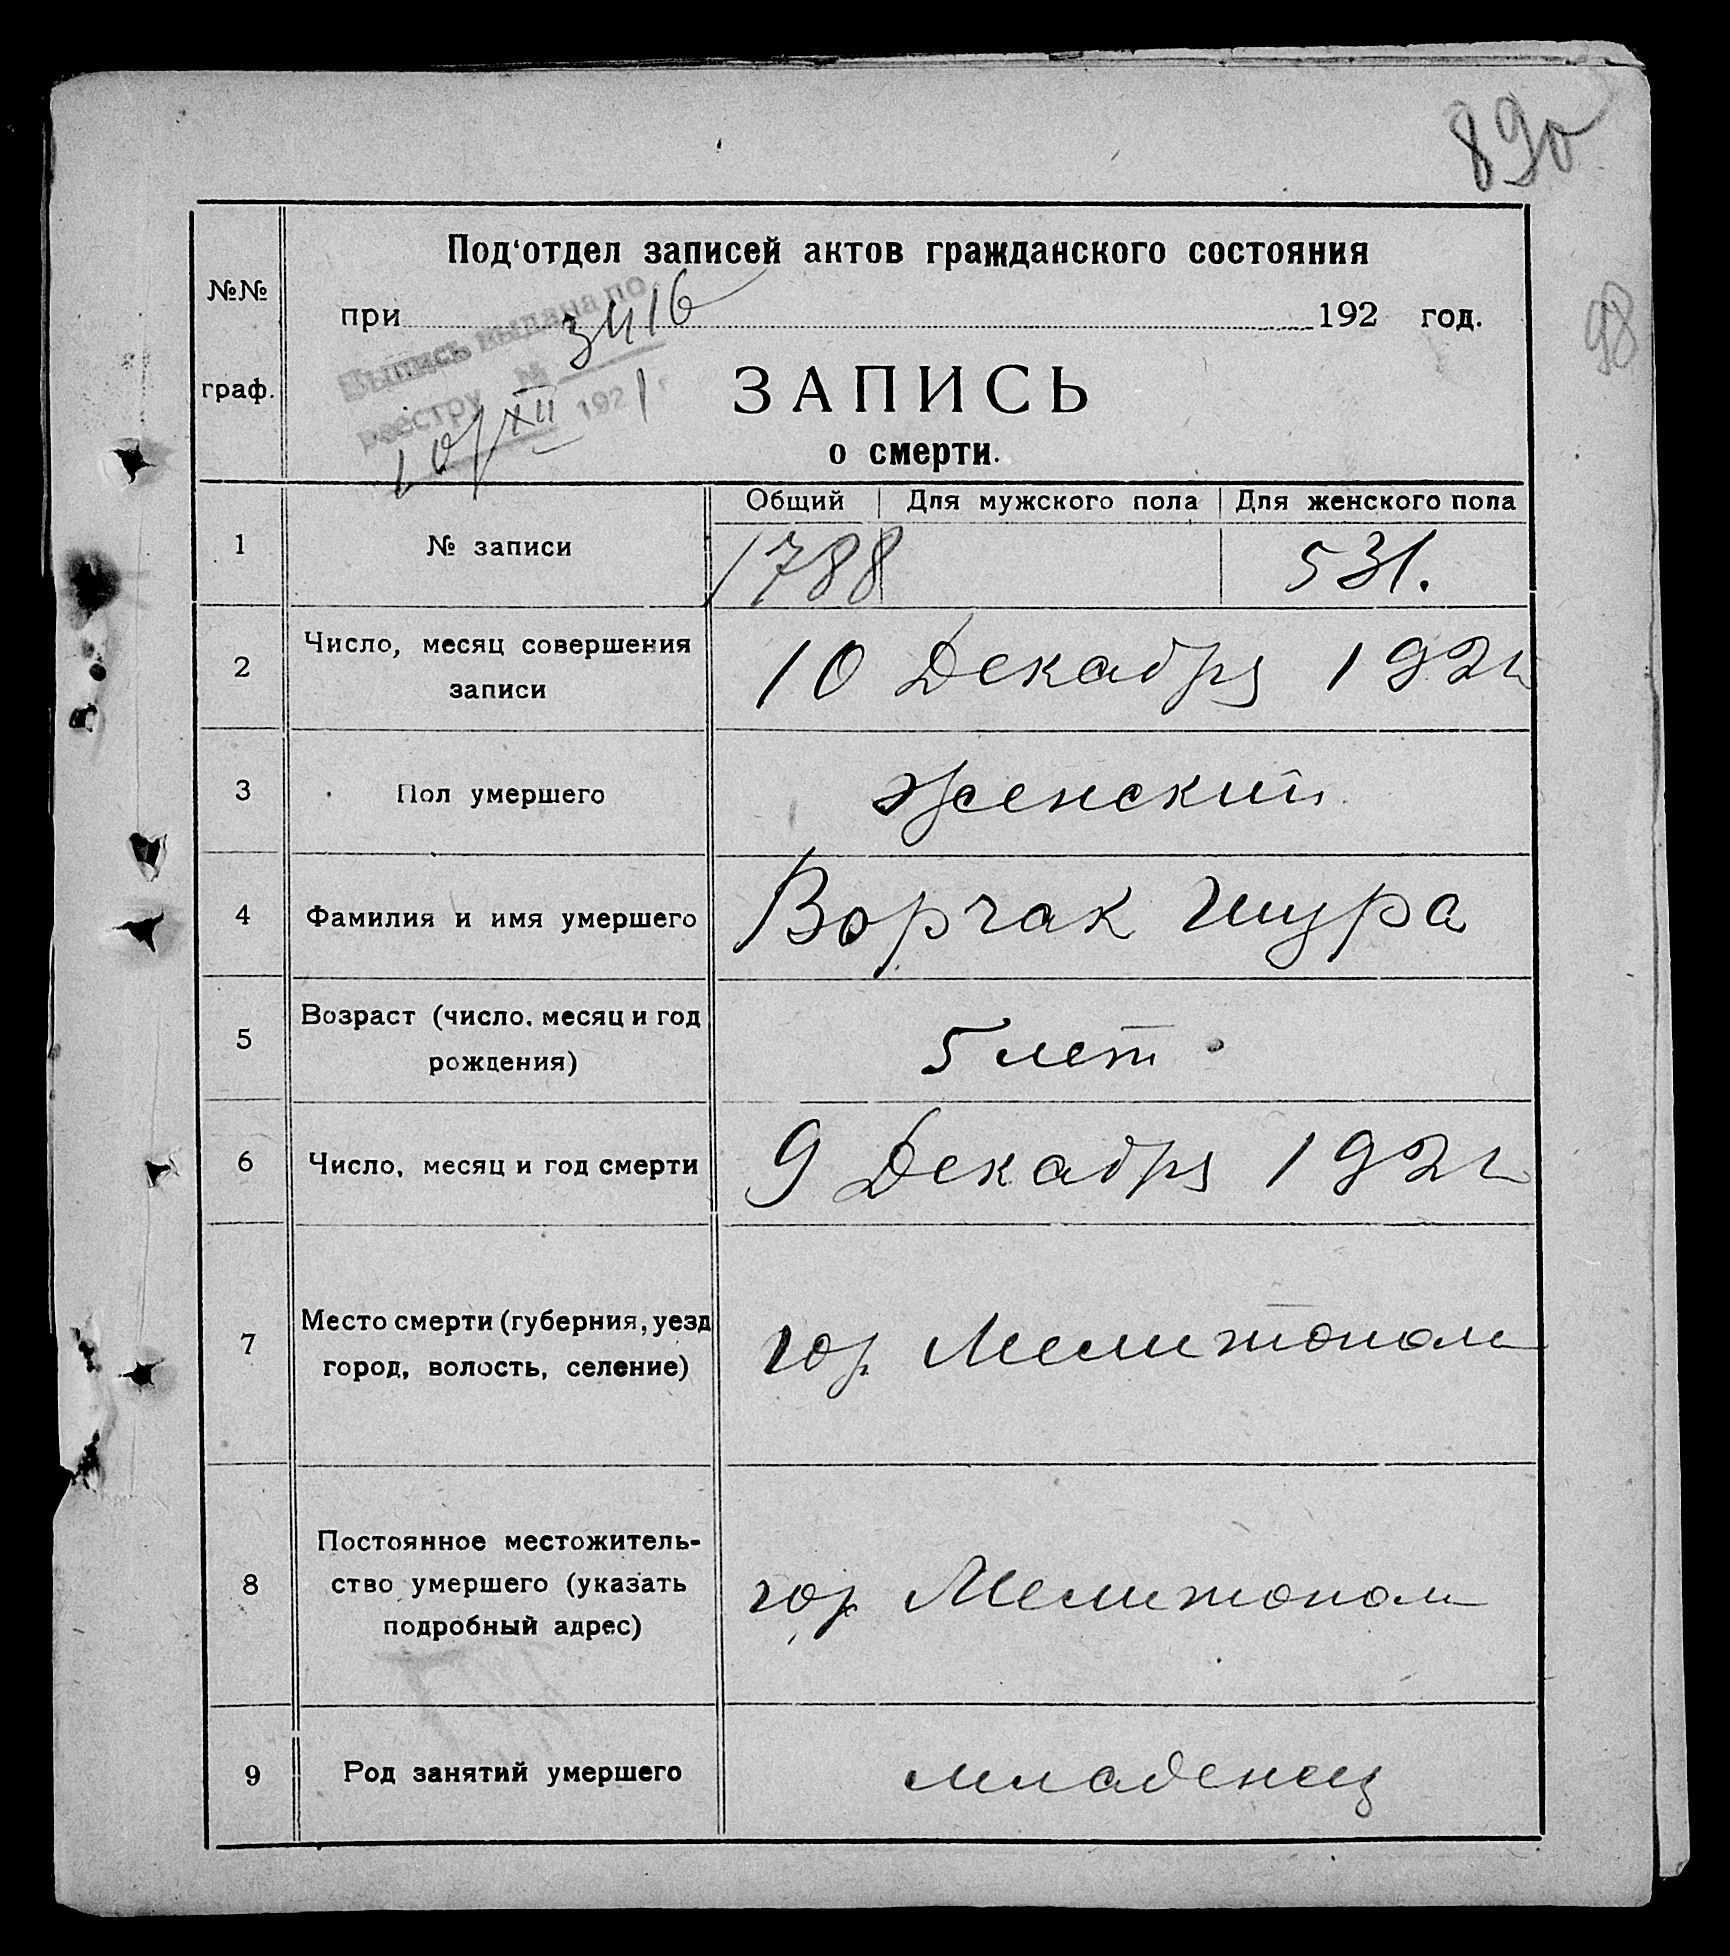 890
98
Под'отдел записей актов гражданского состояния
№№
граф.
при 192 год.
Выпись выдана по
реестру № 3416
10/XII 1921 г.
ЗАПИСЬ
о смерти.
Общий Для мужского пола Для женского пола
1 № записи 1788 531.
2 Число, месяц совершения записи 10 Декабря 1921
3 Пол умершего Женский
4 Фамилия и имя умершего Ворчак Шура
5 Возраст (число, месяц и год рождения) 5 лет
6 Число, месяц и год смерти 9 Декабря 1921
7 Место смерти (губерния, уезд город, волость, селение) гор. Мелитополь
8 Постоянное местожительство умершего (указать подробный адрес) гор. Мелитополь
9 Род занятий умершего младенец